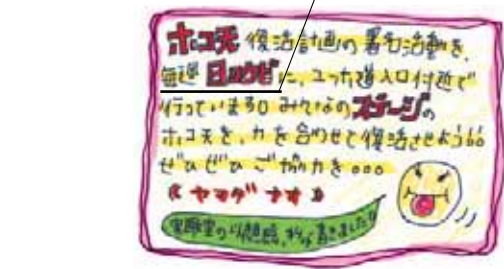 ホコ天 復活計画の署名活動を、
毎週 日ヨウビに、ユった道入口付近で
行っています。 みんなのステージの
ホコ天を、力を合わせて復活させよう
ぜひぜひ ご協力を。。。
《ヤマダ ナオ》
書きました